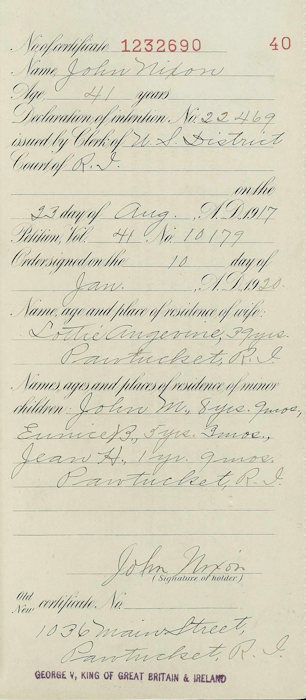 No. of certificate 1232690 40
Name John Nixon
Age 41 years
Declaration of intention, No. 22469
issued by Clerk of U. S. District
Court of R. I.
on the
23 day of Aug. A.D. 1917
Petition, Vol. 41 No. 10179
Order signed on the 10 day of
Jan. A.D. 1920.
Name, age and place of residence of wife:
Lottie Angevine, 39 yrs.
Pawtucket, R. I.
Names, ages and places of residence of minor
children: John M., 8 yrs. 9 mos.,
Eunice B., 5 yrs. 3 mos.,
Jean H., 1 yr. 9 mos.
Pawtucket, R. I.
John Nixon
(Signature of holder.)
Old
New certificate, No.
1036 Main Street,
Pawtucket, R. I.
GEORGE V, KING OF GREAT BRITAIN & IRELAND